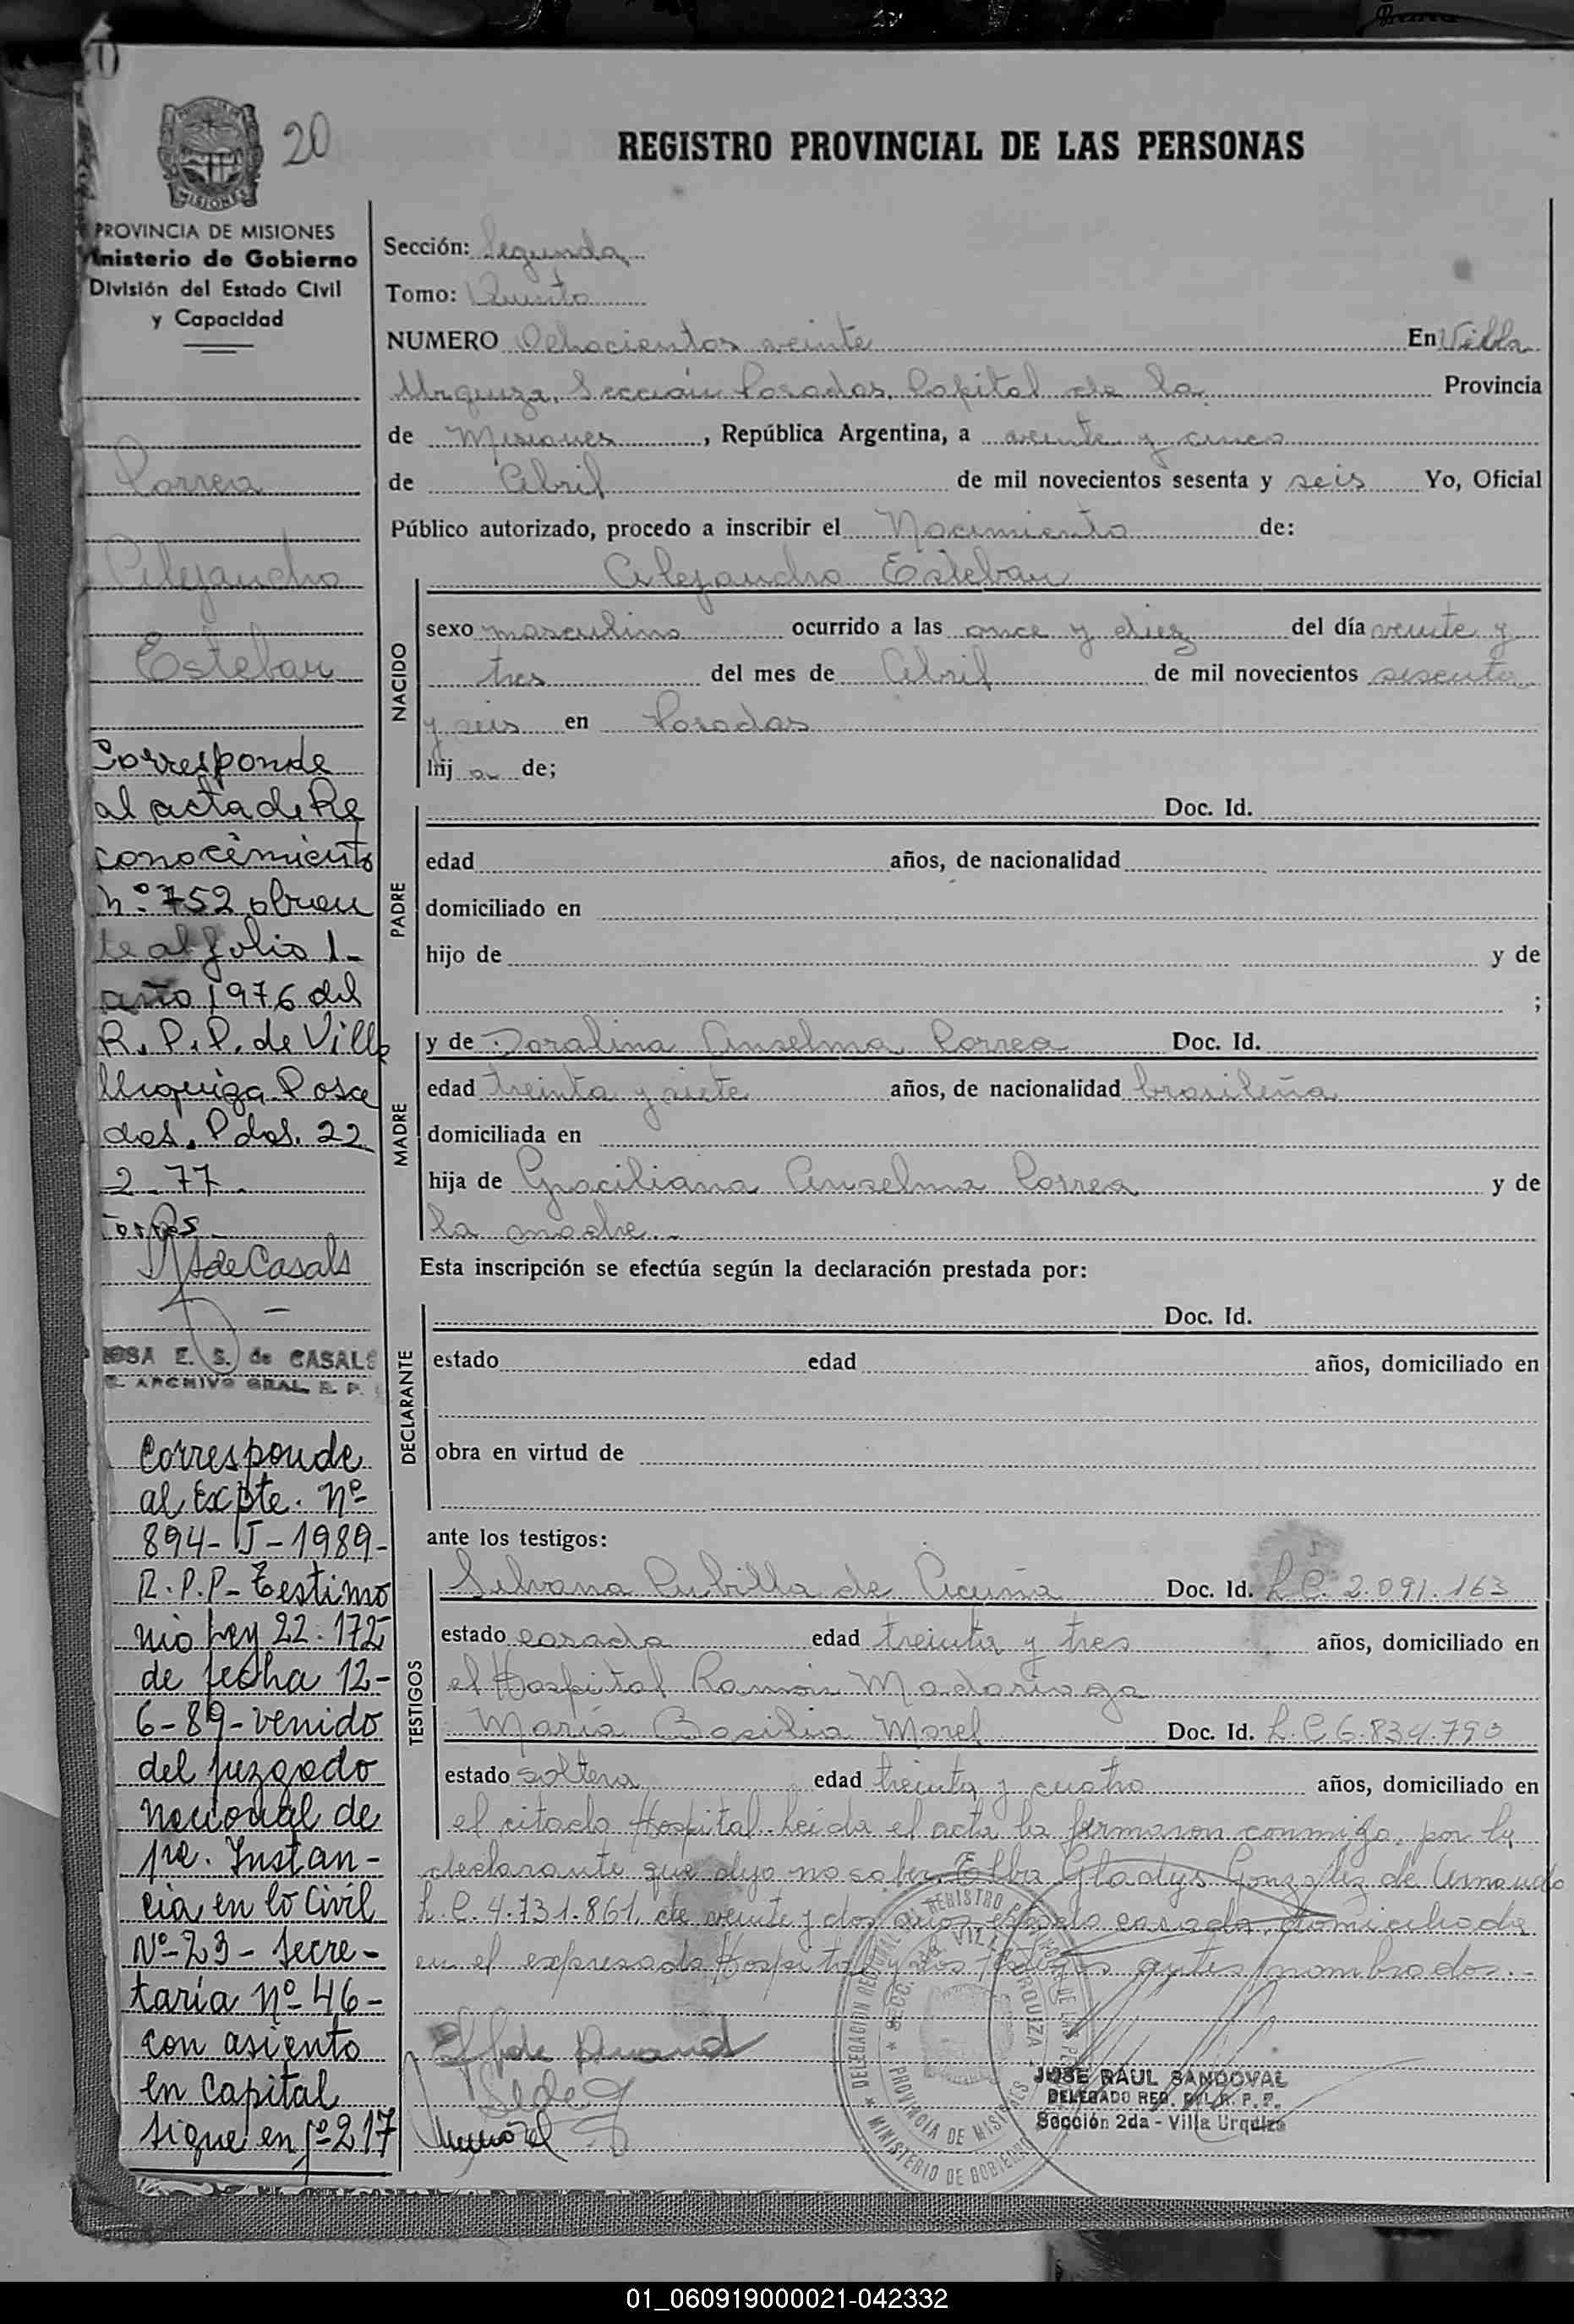 20
REGISTRO PROVINCIAL DE LAS PERSONAS
MISIONES
PROVINCIA DE MISIONES
Ministerio de Gobierno
División del Estado Civil
y Capacidad
Correa
Alejandro
Esteban
Corresponde
al acta de Re
conocimiento
Nº 752 obran
te al folio 1-
año 1976 del
R. P. P. de Villa
Urquiza Posa
das. Pdas. 22
2-77.
Torres
de Casals
ROSA E. S. de CASALS
ARCHIVO GRAL. R. P.
Corresponde
al Expte. Nº
894-J-1989-
R.P.P- Testimo
nio Ley 22.172
de fecha 12-
6-89-venido
del juzgado
Nacional de
1ra. Instan-
cia en lo Civil
Nº-23- Secre-
taría Nº-46-
con asiento
en Capital
sigue en fº 217
Sección: Segunda
Tomo: Quinto
NUMERO Ochocientos veinte En Villa
Urquiza, Sección Posadas, Capital de la Provincia
de Misiones, República Argentina, a veinte y cinco
de Abril de mil novecientos sesenta y seis Yo, Oficial
Público autorizado, procedo a inscribir el Nacimiento de:
Alejandro Esteban
NACIDO
sexo masculino ocurrido a las once y diez del día veinte y
tres del mes de Abril de mil novecientos sesenta
y seis en Posadas
hij o de;
PADRE
Doc. Id.
edad años, de nacionalidad
domiciliado en
hijo de y de
;
MADRE
y de Doralina Anselma Correa Doc. Id.
edad treinta y siete años, de nacionalidad brasileña
domiciliada en
hija de Graciliana Anselma Correa y de
la madre.-
Esta inscripción se efectúa según la declaración prestada por:
DECLARANTE
Doc. Id.
estado edad años, domiciliado en
obra en virtud de
ante los testigos:
TESTIGOS
Silvana Cubilla de Acuña Doc. Id. L.C. 2.091.163
estado casada edad treinta y tres años, domiciliado en
el Hospital Ramón Madariaga
María Basilia Morel Doc. Id. L.C 6.834.793
estado soltera edad treinta y cuatro años, domiciliado en
el citado Hospital. Leida el acta la firmaron conmigo, por la
declarante que dijo no saber Elba Gladys González de
L.C. 4.731.861, de veinte y dos años, estado casada, domiciliada
en el expresado Hospital y los testigos antes nombrados.-
DELEGACION REGIONAL DEL REGISTRO PROVINCIAL DE LAS PERSONAS
SECC. 2da. VILLA URQUIZA
PROVINCIA DE MISIONES
MINISTERIO DE GOBIERNO
JOSE RAUL SANDOVAL
DELEGADO REG. DEL R. P. P.
Sección 2da - Villa Urquiza
01_060919000021-042332